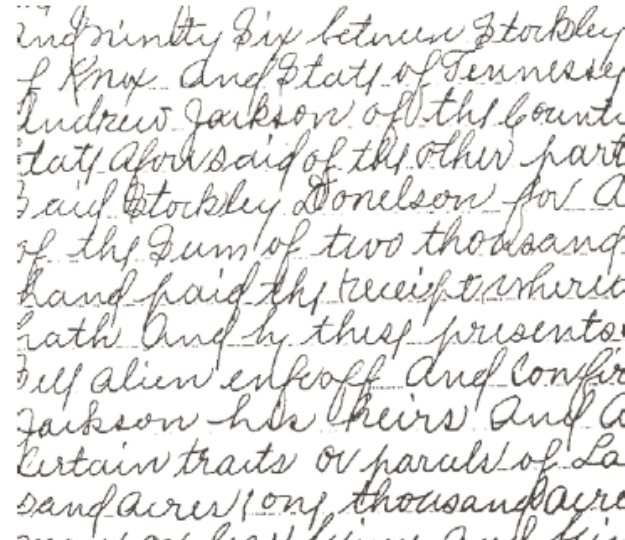 and ninety Six between Stockley
of Knox and State of Tennessee
Andrew Jackson of the Count
State aforesaid of the other part
Said Stockley Donelson for
of the Sum of two thousand
hand paid the receipt where
hath And by these presents
Sell alien enfeoff and Confir
Jackson his heirs And a
Certain tracts or parcels of La
sand acres, one thousand acre